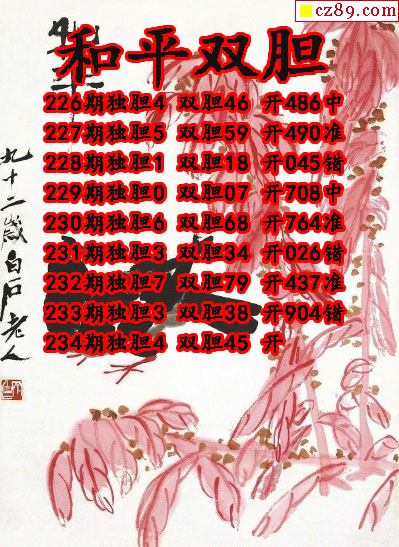 cz89.com
和平双胆
226期独胆4 双胆46 开486中
227期独胆5 双胆59 开490准
228期独胆1 双胆18 开045错
229期独胆0 双胆07 开708中
230期独胆6 双胆68 开764准
231期独胆3 双胆34 开026错
232期独胆7 双胆79 开437准
233期独胆3 双胆38 开904错
234期独胆4 双胆45 开
九十二岁白石老人